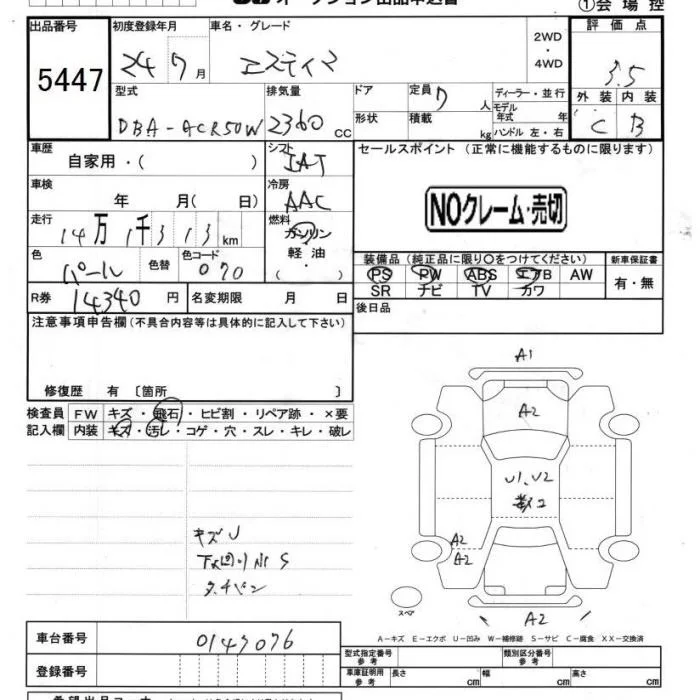 オークション出品申込書 ①会場控
出品番号 初度登録年月 車名・グレード 2WD・4WD 評価点
5447 24 7月 エスティマ 3.5
型式 排気量 ドア 定員 7人 ディーラー・並行 外装 内装
DBA-ACR50W 2360cc 形状 積載 kg モデル年式 年 ハンドル 左・右 C B
車歴 自家用・( ) シフト IAT セールスポイント (正常に機能するものに限ります)
車検 年 月( 日) 冷房 AAC NOクレーム・売切
走行 14万1千313km 燃料 ガソリン
色 パール 色替 色コード 070 軽油・( )
装備品 (純正品に限り○をつけてください) 新車保証書
PS PW ABS エアB AW 有・無
SR ナビ TV カワ
R券 14340円 名変期限 月 日 後日品
注意事項申告欄 (不具合内容等は具体的に記入して下さい)
修復歴 有 〔箇所 〕
検査員 FW キズ・飛石・ヒビ割・リペア跡・×要
記入欄 内装 キズ・汚レ・コゲ・穴・スレ・キレ・破レ
A1
A2
U1、U2
A2
A2
キズU
S
A2
スペア
A-キズ E-エクボ U-凹み W-補修跡 S-サビ C-腐食 XX-交換済
車台番号 0147076
型式指定番号 参考 類別区分番号 参考
登録番号 車庫証明用 参考 長さ cm 幅 cm 高さ cm